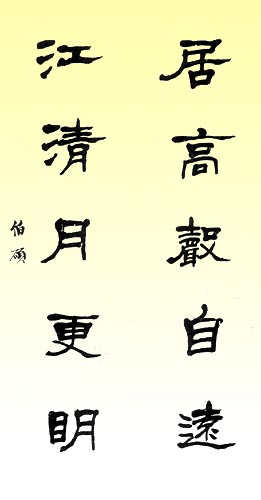 居高聲自遠
江清月更明
伯碩